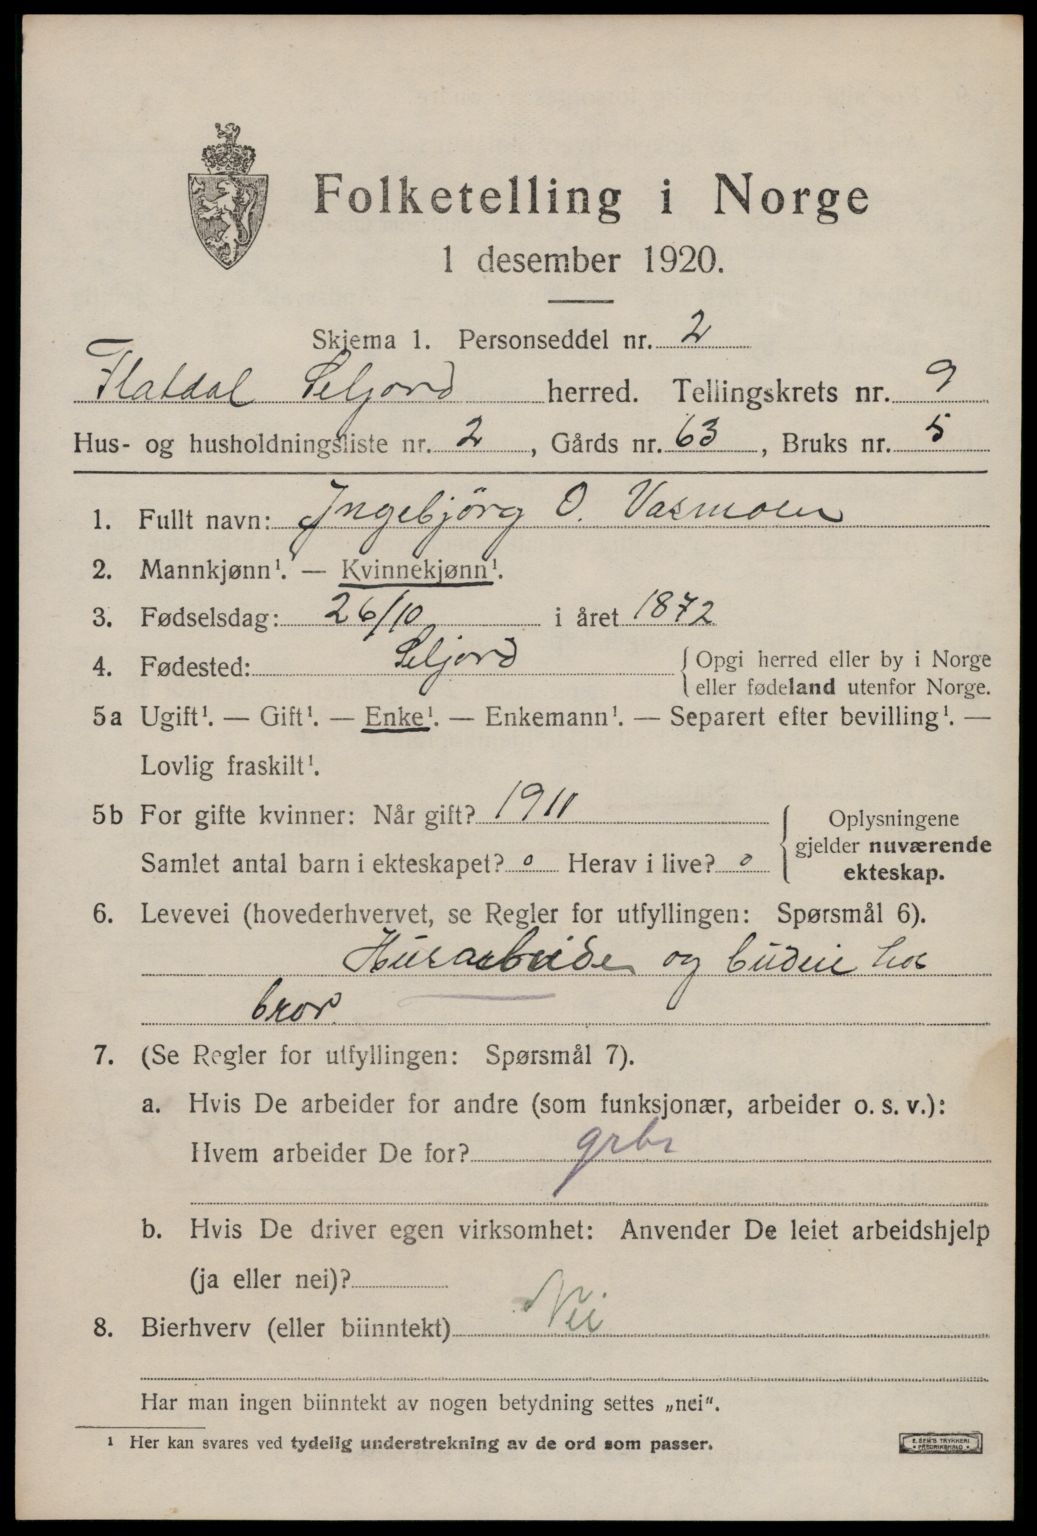 Folketelling i Norge
1 desember 1920.
Skjema 1. Personseddel nr. 2
Flatdal Seljord herred. Tellingskrets nr. 9
Hus- og husholdningsliste nr. 2, Gårds nr. 63, Bruks nr. 5
1. Fullt navn: Ingebjörg O. Vasmoen
2. Mannkjønn¹. — Kvinnekjønn¹.
3. Fødselsdag: 26/10 i året 1872
4. Fødested: Seljord {Opgi herred eller by i Norge
eller fødeland utenfor Norge.
5a Ugift¹. — Gift¹. — Enke¹. — Enkemann¹. — Separert efter bevilling¹. —
Lovlig fraskilt¹.
5b For gifte kvinner: Når gift? 1911
Samlet antal barn i ekteskapet? 0 Herav i live? 0
Oplysningene
gjelder nuværende
ekteskap.
6. Levevei (hovederhvervet, se Regler for utfyllingen: Spørsmål 6).
Husarbeide og budeie hos
bror.
7. (Se Regler for utfyllingen: Spørsmål 7).
a. Hvis De arbeider for andre (som funksjonær, arbeider o. s. v.):
Hvem arbeider De for? grbr
b. Hvis De driver egen virksomhet: Anvender De leiet arbeidshjelp
(ja eller nei)?
8. Bierhverv (eller biinntekt) Nei
Har man ingen biinntekt av nogen betydning settes „nei".
¹ Her kan svares ved tydelig understrekning av de ord som passer.
E. SEM'S TRYKKERI
FREDRIKSHALD